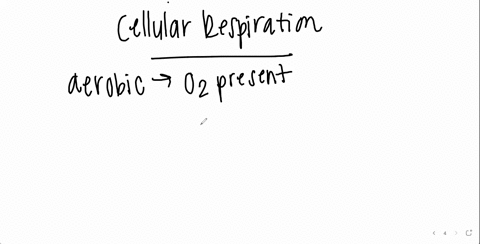 Cellular Respiration
aerobic → O2 present